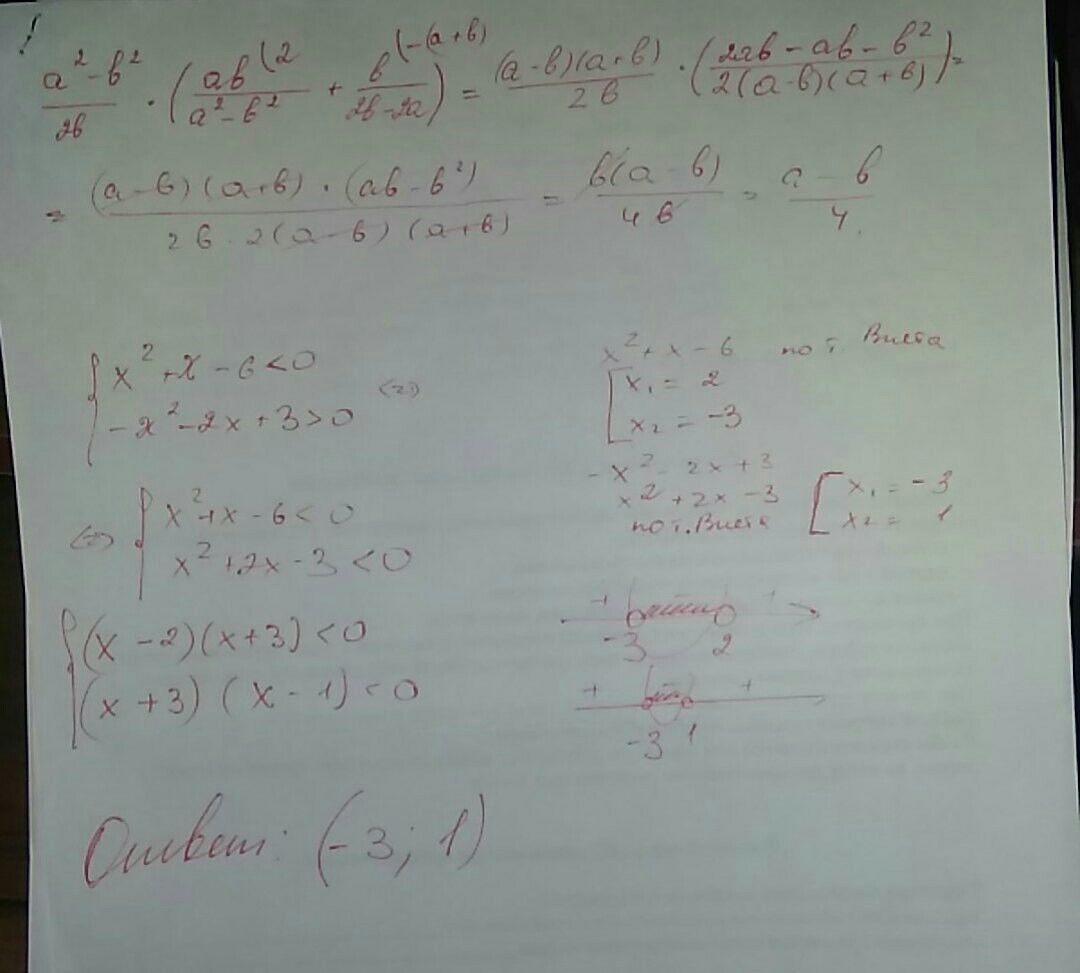 !
a²-b²/2b · (ab⁽²/a²-b² + b⁽-(a+b)/2b-2a) = (a-b)(a+b)/2b · (2ab-ab-b²/2(a-b)(a+b)) =
= (a-b)(a+b)·(ab-b²)/2b·2(a-b)(a+b) = b(a-b)/4b = a-b/4.
{ x²+x-6<0
-x²-2x+3>0 <=>
x²+x-6 по т. Виета
[ x₁ = 2
x₂ = -3
-x²-2x+3
x²+2x-3
по т. Виета [ x₁ = -3
x₂ = 1
<=> { x²+x-6<0
x²+2x-3<0
{ (x-2)(x+3)<0
(x+3)(x-1)<0
+ +
-3 2
+ +
-3 1
Ответ: (-3; 1)